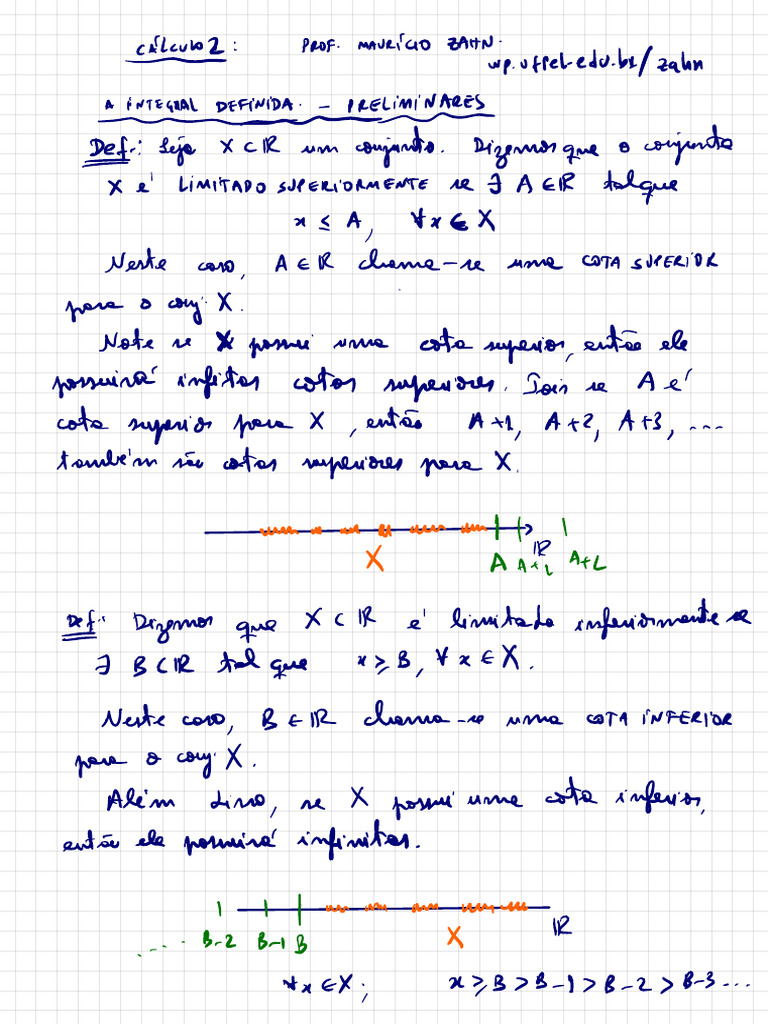 CÁLCULO 2: PROF. MAURÍCIO ZAHN.
wp.ufpel.edu.br/zahn
A INTEGRAL DEFINIDA. - PRELIMINARES
Def.: Seja X⊂ℝ um conjunto. Dizemos que o conjunto
X é LIMITADO SUPERIORMENTE se ∃ A∈ℝ tal que
x ≤ A, ∀x ∈ X
Neste caso, A∈ℝ chama-se uma COTA SUPERIOR
para o conj. X.
Note se X possui uma cota superior, então ele
possuirá infitas cotas superiores. Pois se A é
cota superior para X, então A+1, A+2, A+3, ...
também são cotas superiores para X.
X A A+1 ℝ A+2
Def.: Dizemos que X⊂ℝ é limitado inferiormente se
∃ B⊂ℝ tal que x ≥ B, ∀x∈X.
Neste caso, B∈ℝ chama-se uma COTA INFERIOR
para o conj. X.
Além disso, se X possui uma cota inferior,
então ele possuirá infinitas.
.... B-2 B-1 B X ℝ
∀x∈X; x ≥ B > B-1 > B-2 > B-3 ...